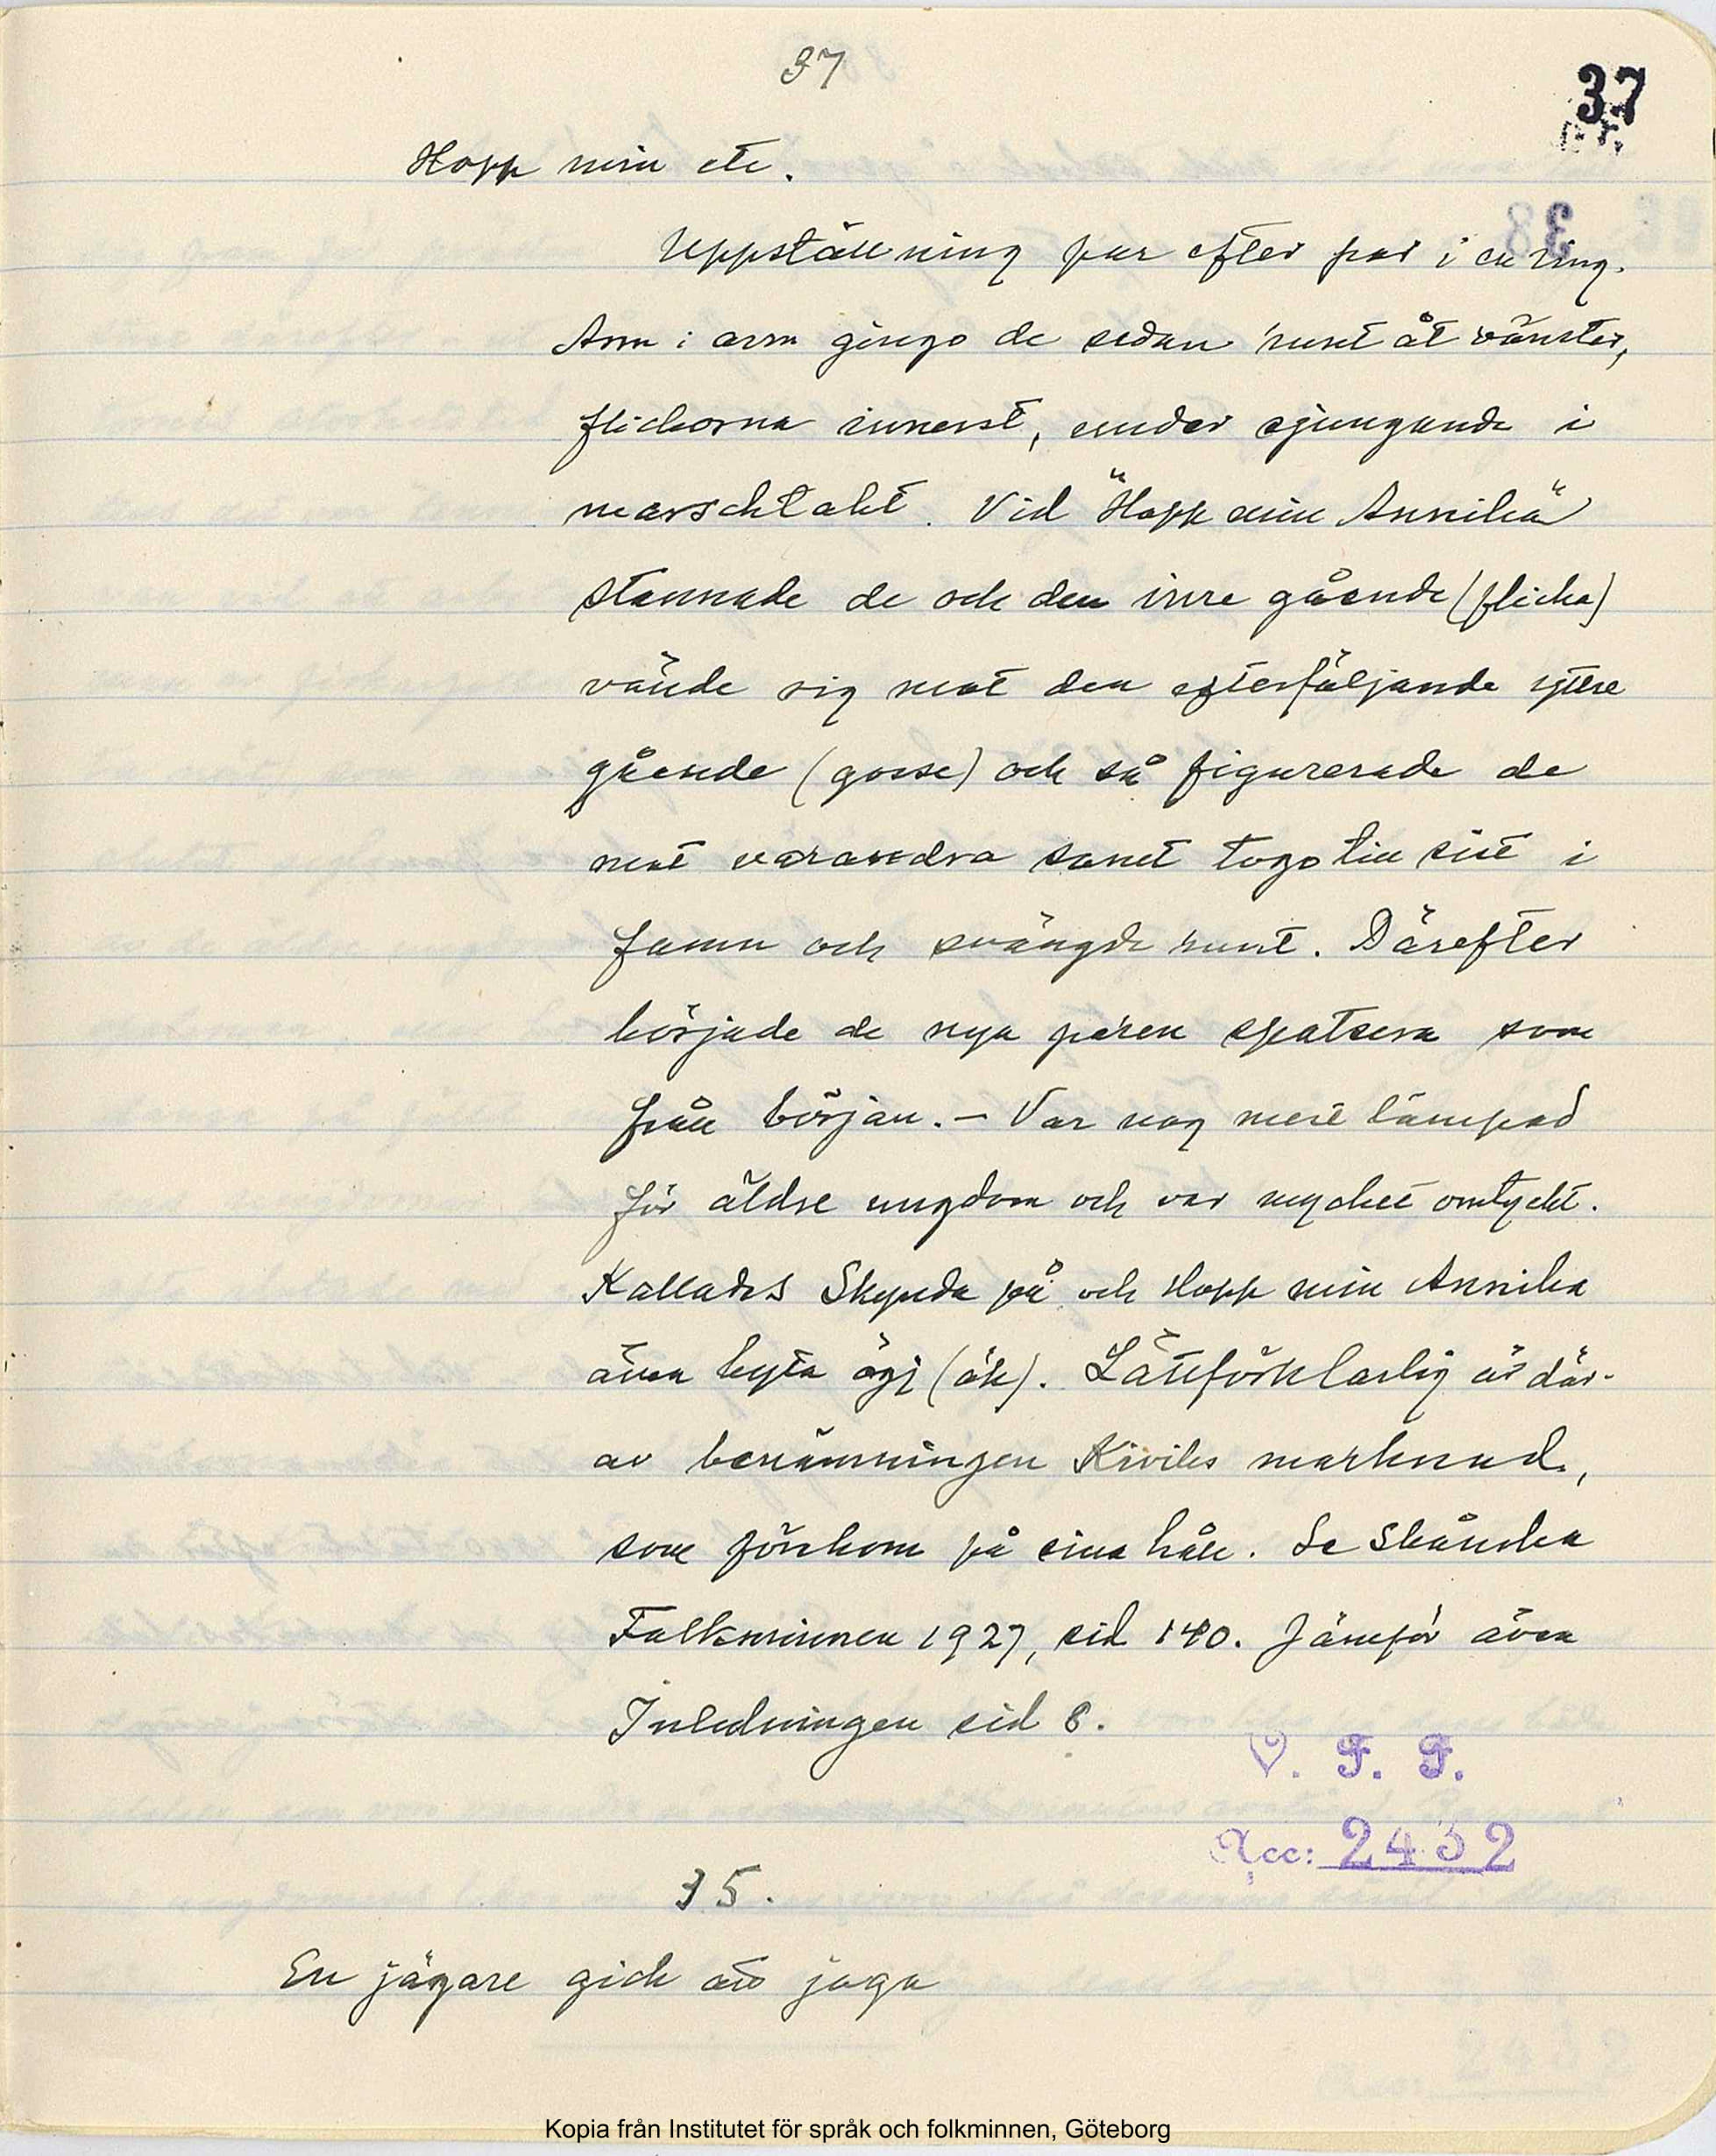 37
37
Hopp min etc.
Uppställning par efter par i en ring.
Arm i arm gingo de sedan runt åt vänster,
flickorna innerst, under sjungande i
marschtakt. Vid "Hopp min Annika"
stannade de och den inre gående (flicka)
vände sig mot den efterföljande yttre
gående (gosse) och så figurerade de
mot varandra samt togo till sist i
famn och svängde runt. Därefter
började de nya paren spatsera som
från början. – Var nog mest lämpad
för äldre ungdom och var mycket omtyckt.
Kallades Skynda på och Hopp min Annika
även byta (ök). Lättförklarlig är där-
av benämningen Kiviks marknad,
som förekom på sina håll. Se Skånska
Folkminnen 1927, sid 140. Jämför även
Inledningen sid 8.
V. F. F.
Acc: 2432
35.
En jägare gick att jaga
Kopia från Institutet för språk och folkminnen, Göteborg